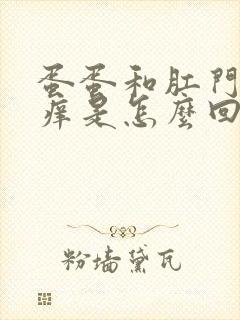 蛋蛋和肛門
癢是怎麼回
粉墻黛瓦